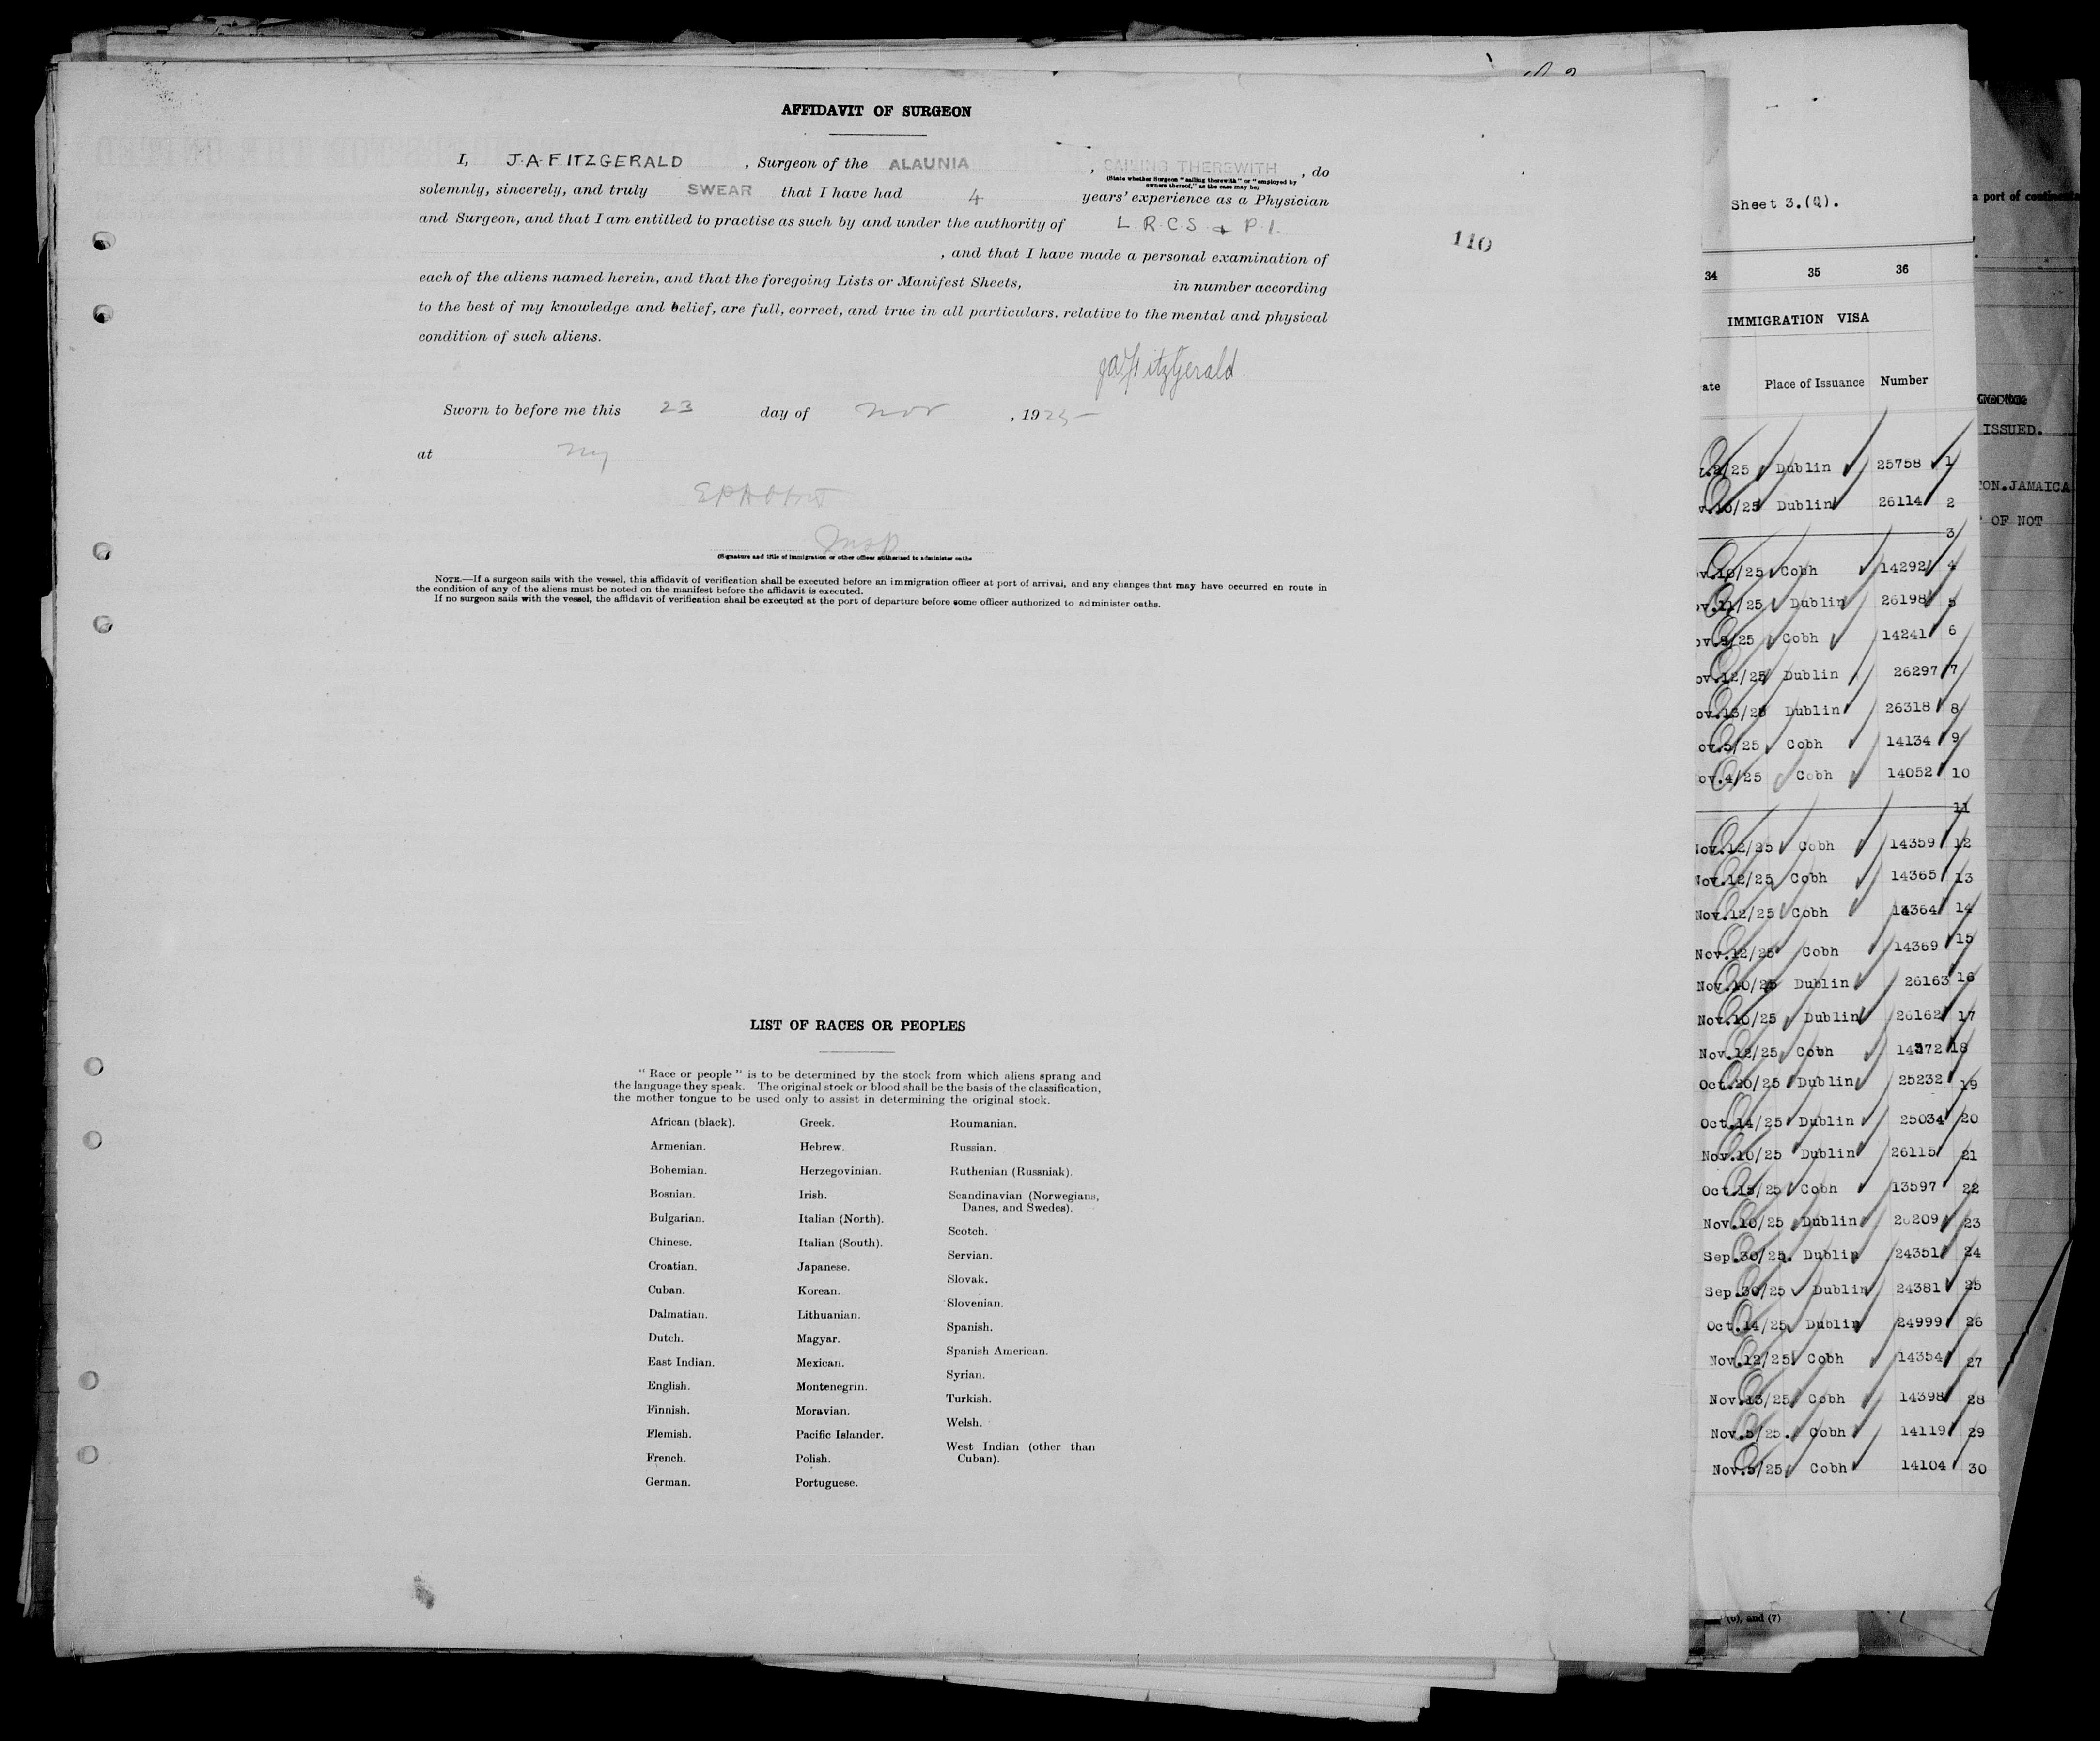 AFFIDAVIT OF SURGEON
I, J.A.FITZGERALD , Surgeon of the ALAUNIA , SAILING THEREWITH , do
(State whether Surgeon "sailing therewith" or "employed by
owners thereof," as the case may be)
solemnly, sincerely, and truly SWEAR that I have had 4 years' experience as a Physician
and Surgeon, and that I am entitled to practise as such by and under the authority of L.R.C.S. & P.I.
, and that I have made a personal examination of
each of the aliens named herein, and that the foregoing Lists or Manifest Sheets, in number according
to the best of my knowledge and belief, are full, correct, and true in all particulars. relative to the mental and physical
condition of such aliens.
JA FitzGerald
Sworn to before me this 23 day of Nov , 1925
at NY
Insp
(Signature and title of immigration or other officer authorised to administer oaths
NOTE.—If a surgeon sails with the vessel, this affidavit of verification shall be executed before an immigration officer at port of arrival, and any changes that may have occurred en route in
the condition of any of the aliens must be noted on the manifest before the affidavit is executed.
If no surgeon sails with the vessel, the affidavit of verification shall be executed at the port of departure before some officer authorized to administer oaths.
110
LIST OF RACES OR PEOPLES
"Race or people" is to be determined by the stock from which aliens sprang and
the language they speak. The original stock or blood shall be the basis of the classification,
the mother tongue to be used only to assist in determining the original stock.
African (black).
Armenian.
Bohemian.
Bosnian.
Bulgarian.
Chinese.
Croatian.
Cuban.
Dalmatian.
Dutch.
East Indian.
English.
Finnish.
Flemish.
French.
German.
Greek.
Hebrew.
Herzegovinian.
Irish.
Italian (North).
Italian (South).
Japanese.
Korean.
Lithuanian.
Magyar.
Mexican.
Montenegrin.
Moravian.
Pacific Islander.
Polish.
Portuguese.
Roumanian.
Russian.
Ruthenian (Russniak).
Scandinavian (Norwegians,
Danes, and Swedes).
Scotch.
Servian.
Slovak.
Slovenian.
Spanish.
Spanish American.
Syrian.
Turkish.
Welsh.
West Indian (other than
Cuban).
Sheet 3.(Q).
34 35 36
IMMIGRATION VISA
ate Place of Issuance Number
v.2/25 Dublin 25758 1
v.10/25 Dublin 26114 2
3
ov.10/25 Cobh 14292 4
ov.11/25 Dublin 26198 5
ov.9/25 Cobh 14241 6
ov.12/25 Dublin 26297 7
ov.13/25 Dublin 26318 8
ov.5/25 Cobh 14134 9
ov.4/25 Cobh 14052 10
11
Nov.12/25 Cobh 14359 12
Nov.12/25 Cobh 14365 13
Nov.12/25 Cobh 14364 14
Nov.12/25 Cobh 14369 15
Nov.10/25 Dublin 26163 16
Nov.10/25 Dublin 26162 17
Nov.12/25 Cobh 14372 18
Oct.20/25 Dublin 25232 19
Oct.14/25 Dublin 25034 20
Nov.10/25 Dublin 26115 21
Oct.15/25 Cobh 13597 22
Nov.10/25 Dublin 26209 23
Sep.30/25. Dublin 24351 24
Sep.30/25 Dublin 24381 25
Oct.14/25 Dublin 24999 26
Nov.12/25 Cobh 14354 27
Nov.13/25 Cobh 14398 28
Nov.5/25. Cobh 14119 29
Nov.5/25 Cobh 14104 30
a port of continenta
ISSUED.
ON.JAMAICA
OF NOT
(6), and (7)